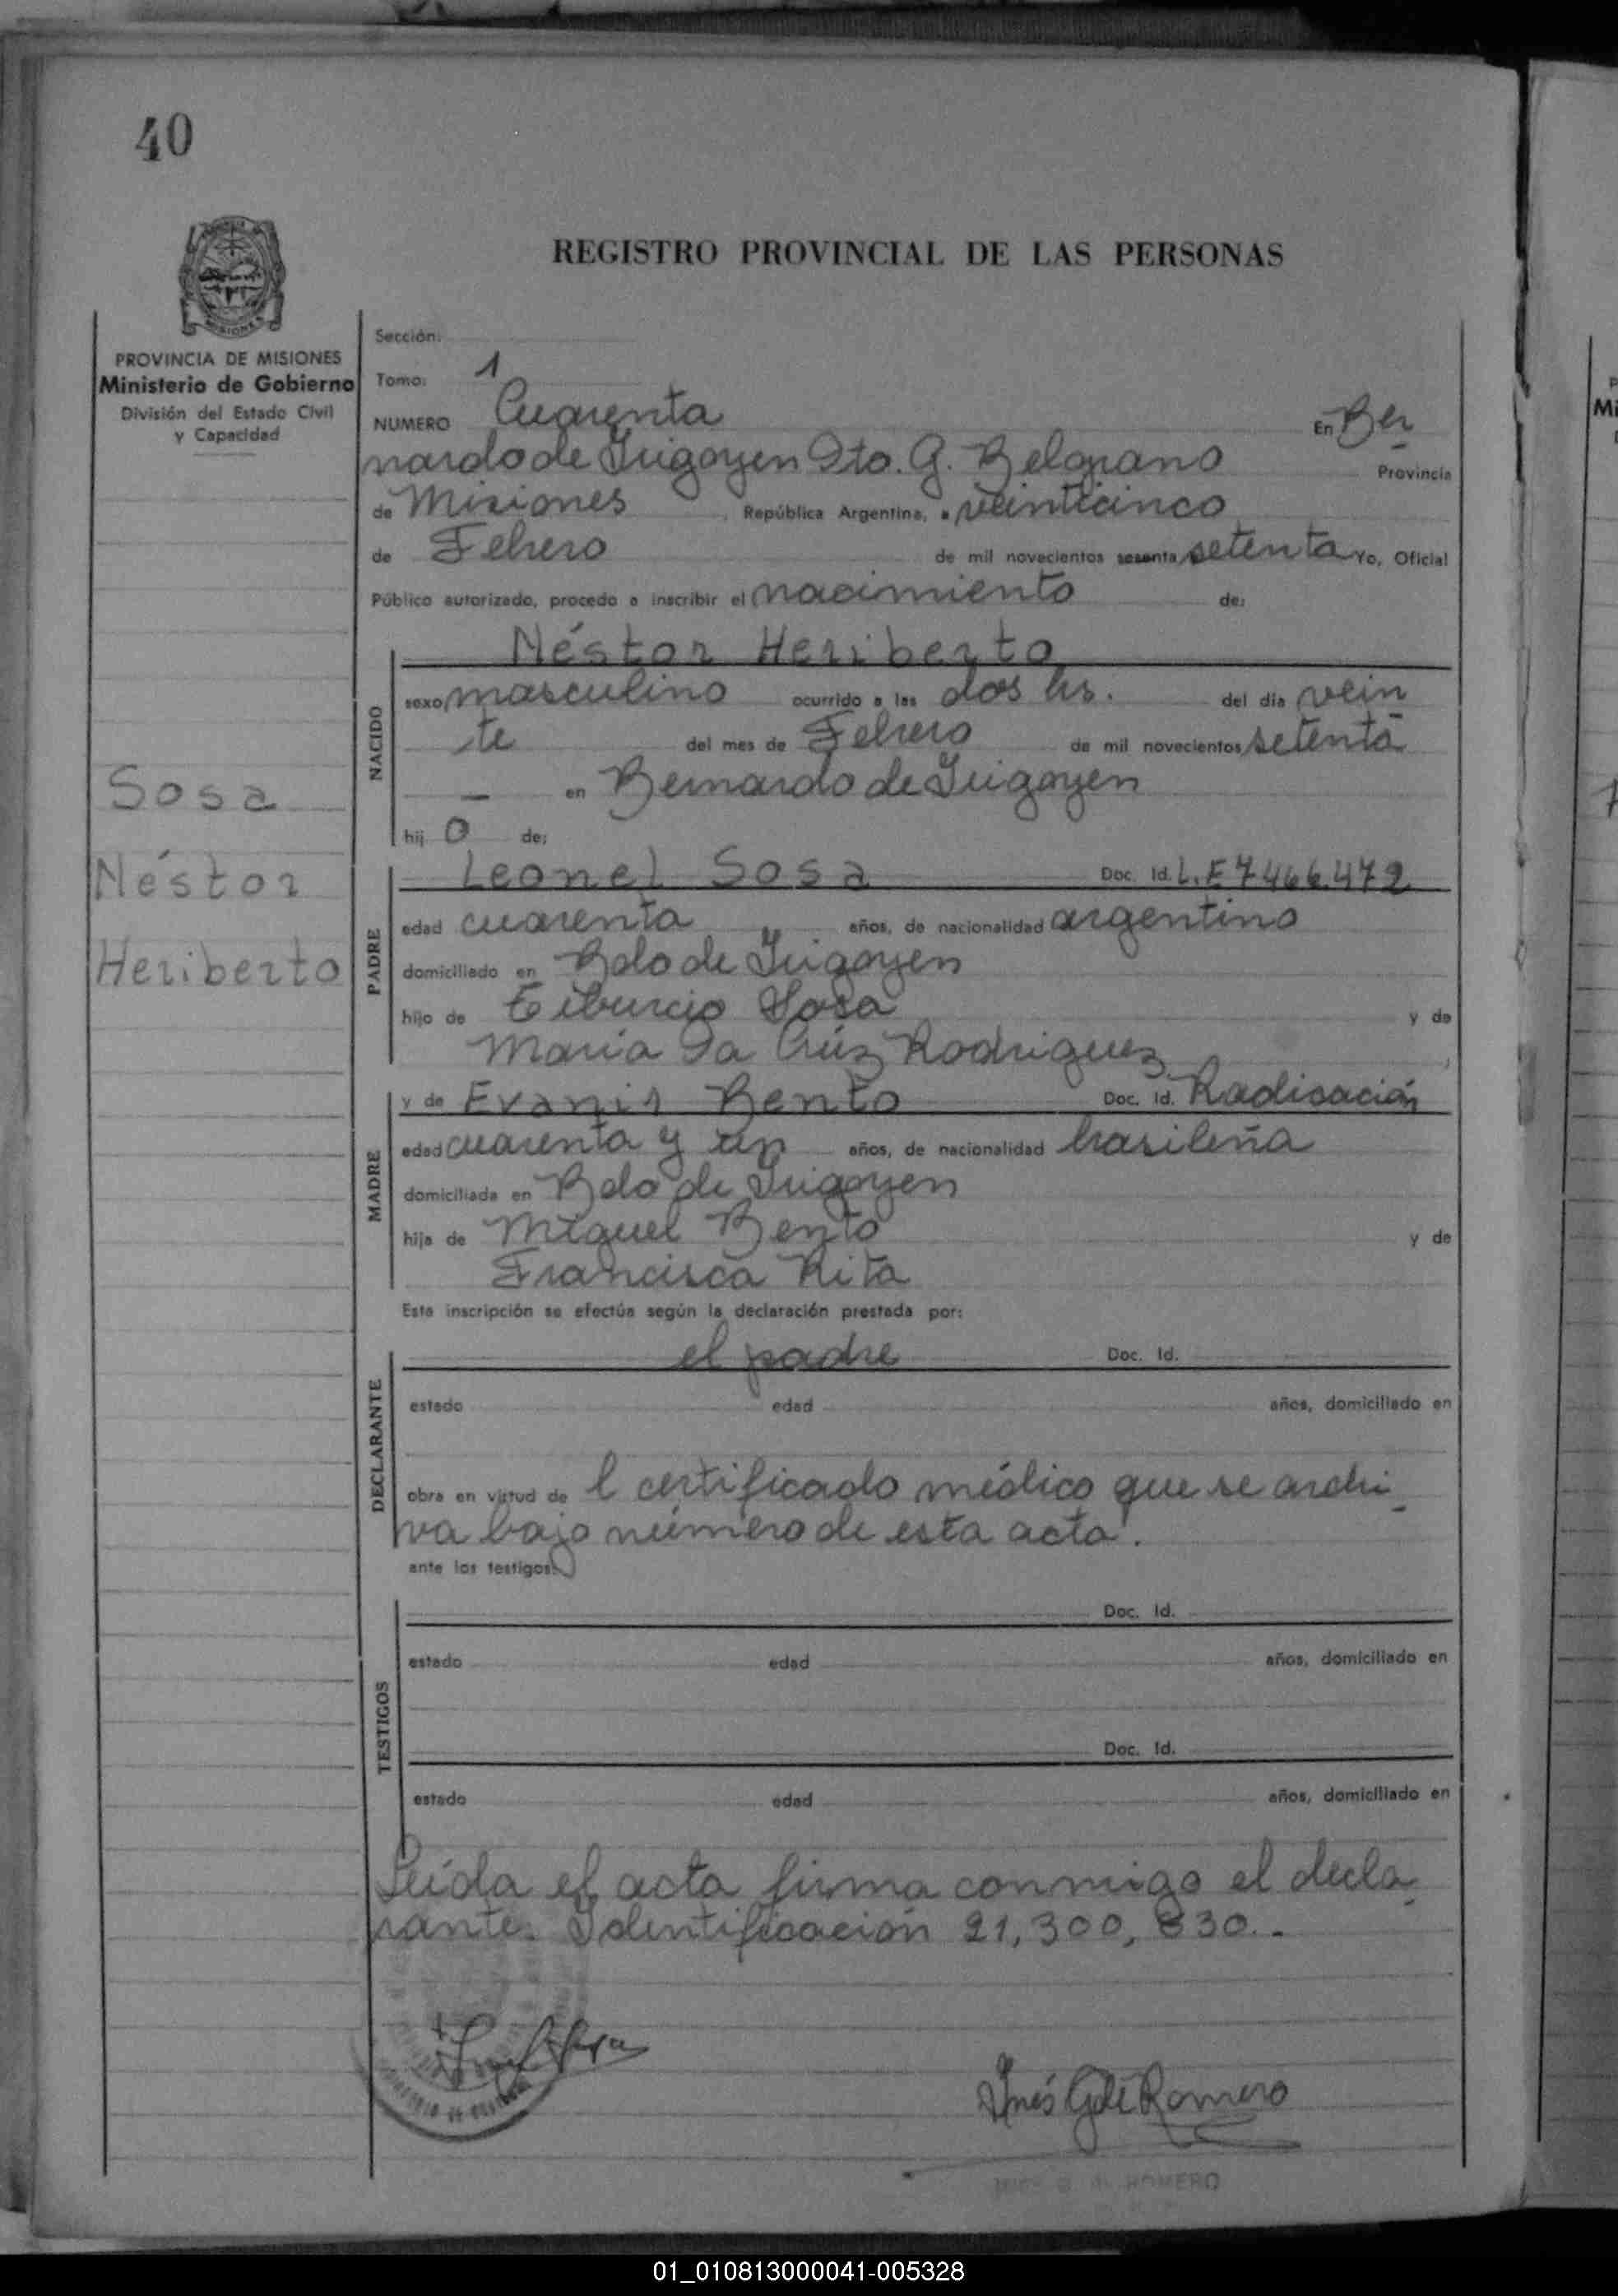 40
REGISTRO PROVINCIAL DE LAS PERSONAS
PROVINCIA DE MISIONES
Ministerio de Gobierno
División del Estado Civil
y Capacidad
Sosa
Néstor
Heriberto
Sección:
Tomo: 1
NUMERO Cuarenta En Ber
nardo de Irigoyen Dto. G. Belgrano Provincia
de Misiones, República Argentina, a veinticinco
de Febrero de mil novecientos sesenta setenta Yo, Oficial
Público autorizado, procedo a inscribir el nacimiento de:
Néstor Heriberto
NACIDO
sexo masculino ocurrido a las dos hs. del día vein
te del mes de Febrero de mil novecientos setenta
— en Bernardo de Irigoyen
hij o de:
PADRE
Leonel Sosa Doc. Id. L.E 7466.472
edad cuarenta años, de nacionalidad argentino
domiciliado en Bdo de Irigoyen
hijo de Tiburcio Sosa y de
María Da Crúz Rodriguez
MADRE
y de Evanir Bento Doc. Id. Radicación
edad cuarenta y un años, de nacionalidad brasileña
domiciliada en Bdo de Irigoyen
hija de Miguel Bento y de
Francisca Rita
Esta inscripción se efectúa según la declaración prestada por:
DECLARANTE
el padre Doc. Id.
estado edad años, domiciliado en
obra en virtud de l certificado médico que se archi
va bajo número de esta acta.
ante los testigos:
TESTIGOS
Doc. Id.
estado edad años, domiciliado en
Doc. Id.
estado edad años, domiciliado en
Leída el acta firma conmigo el decla
rante. Identificación 21,300,830.-
Inés G de Romero
ROMERO
01_010813000041-005328